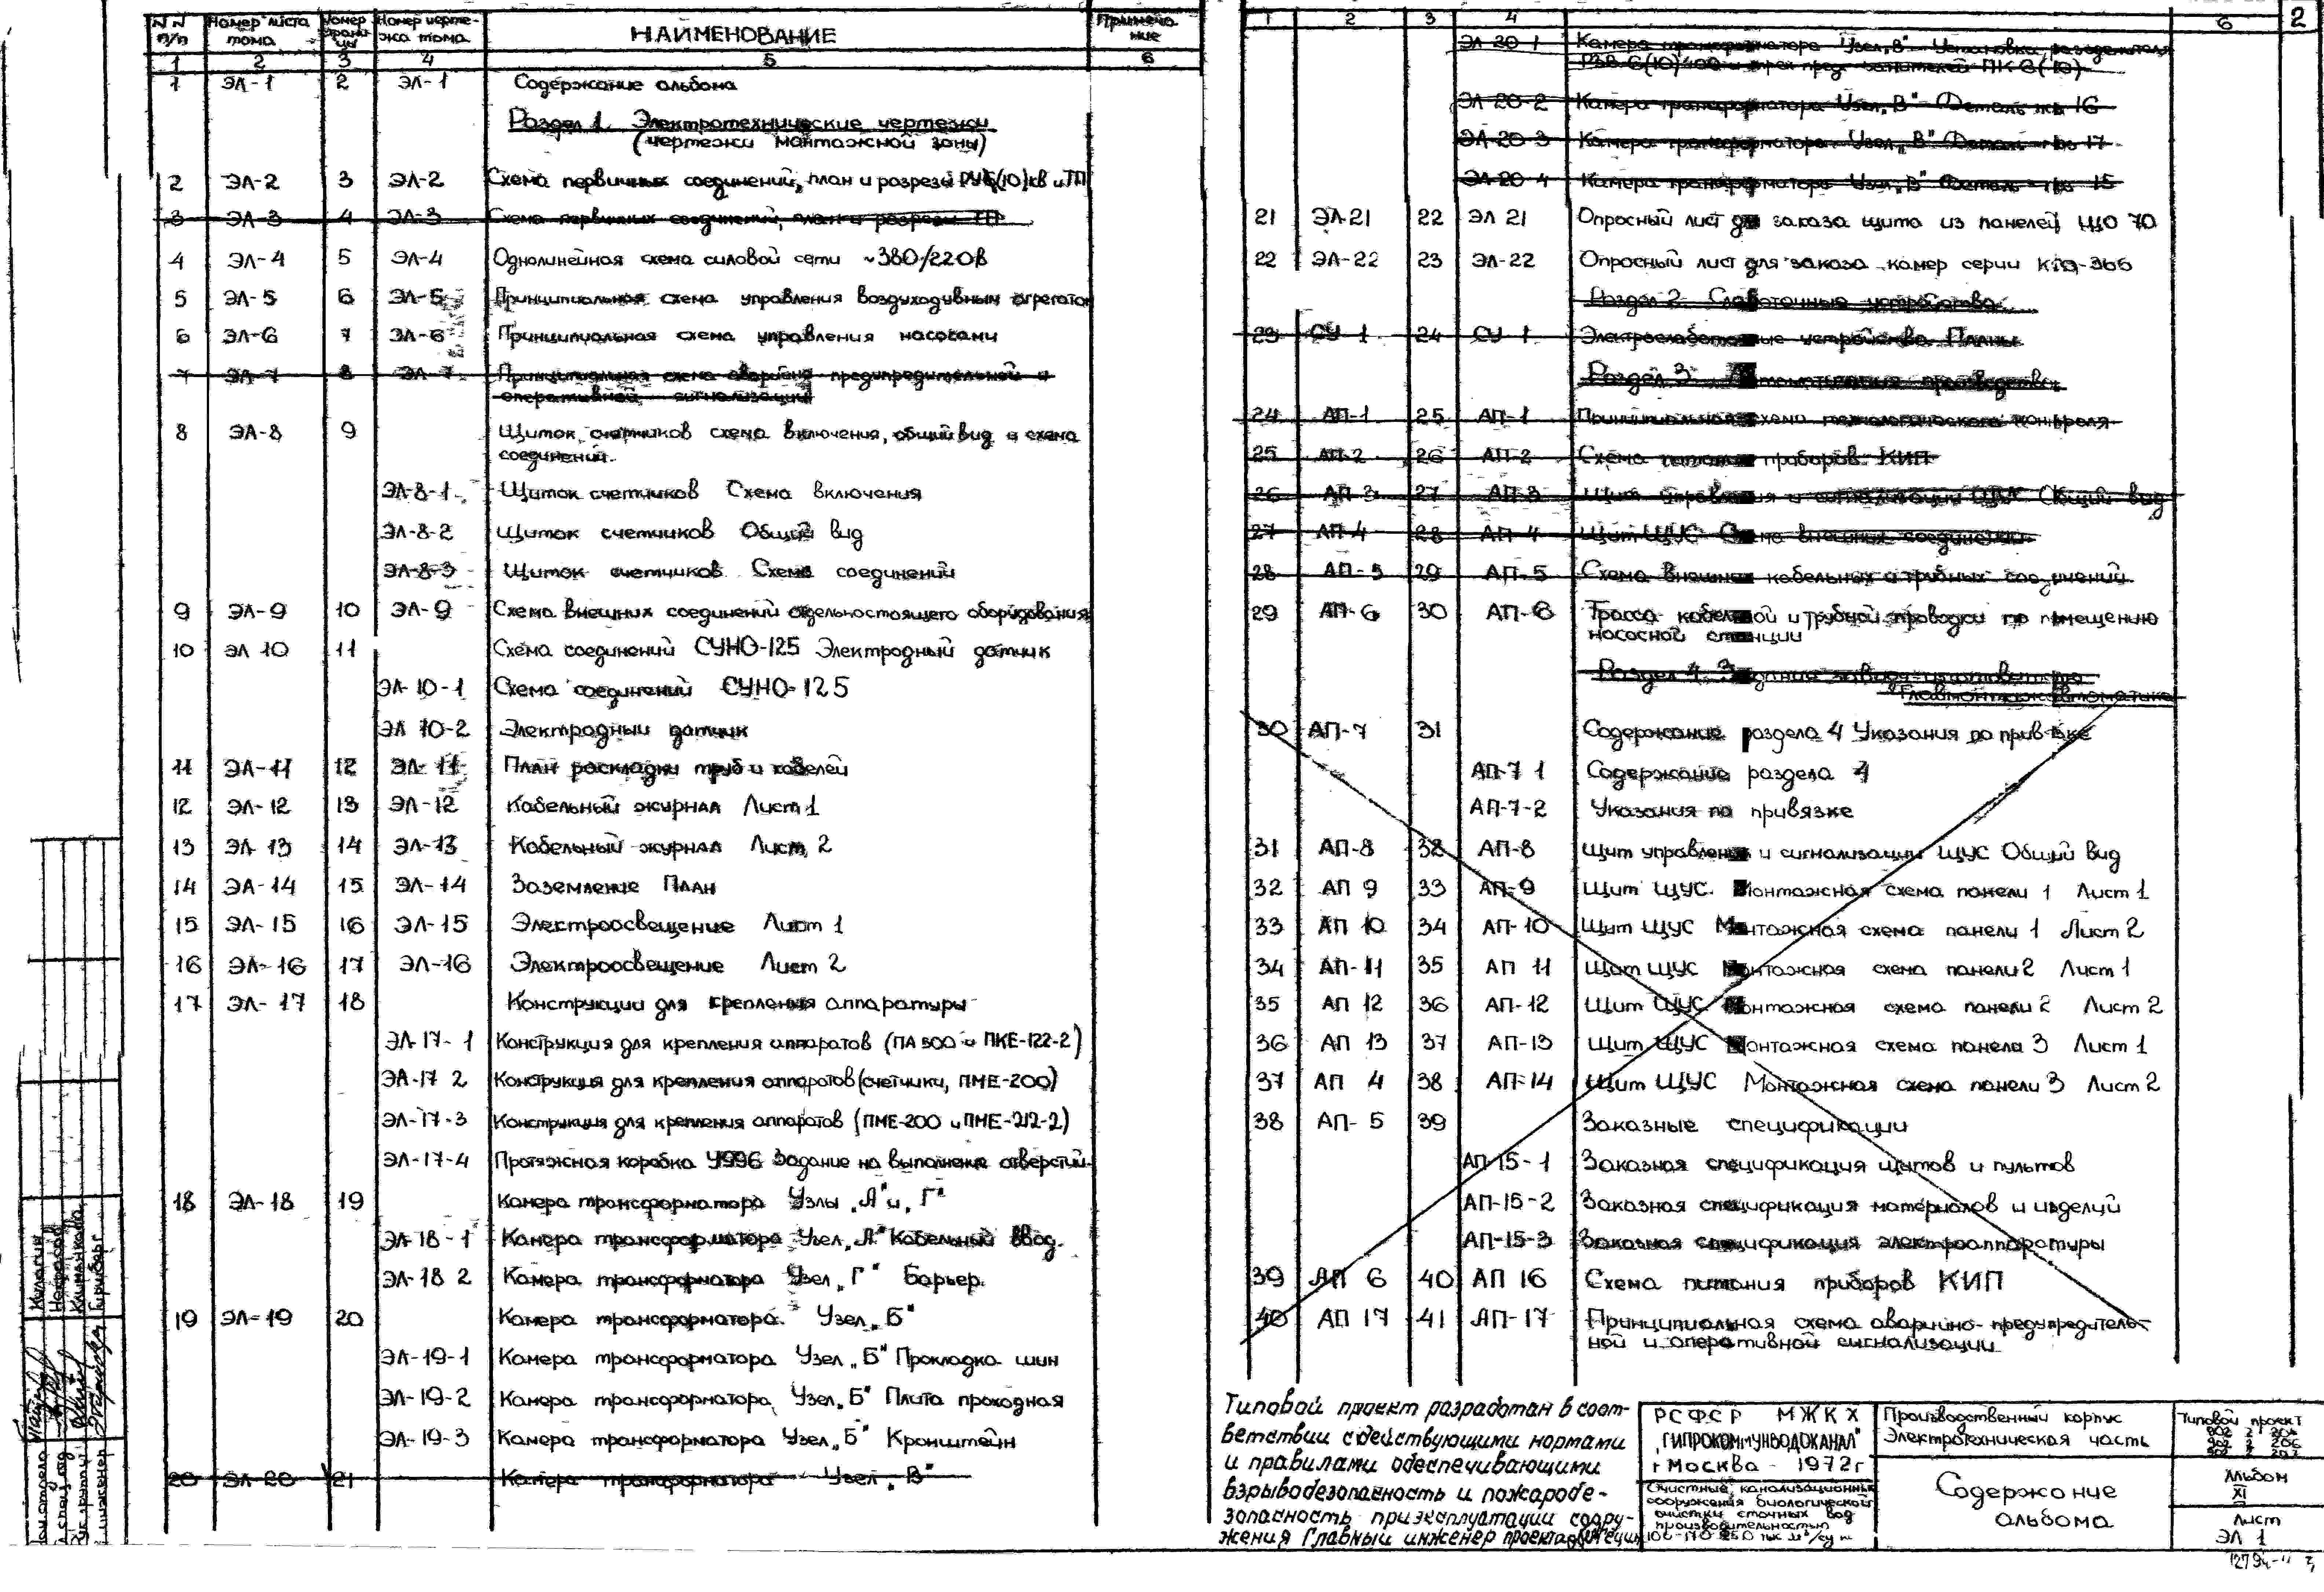 NN п/п Номер листа тома Номер страницы Номер чертежа тома НАИМЕНОВАНИЕ Примечание
1 2 3 4 5 6
1 ЭЛ-1 2 ЭЛ-1 Содержание альбома
Раздел 1. Электротехнические чертежи
(чертежи монтажной зоны)
2 ЭЛ-2 3 ЭЛ-2 Схема первичных соединений, план и разрезы РУ6(10)кв и ТП
3 ЭЛ-3 4 ЭЛ-3 Схема первичных соединений, план и разрезы ТП
4 ЭЛ-4 5 ЭЛ-4 Однолинейная схема силовой сети ~380/220в
5 ЭЛ-5 6 ЭЛ-5 Принципиальная схема управления воздуходувным агрегатом
6 ЭЛ-6 7 ЭЛ-6 Принципиальная схема управления насосами
7 ЭЛ-7 8 ЭЛ-7 Принципиальная схема аварийно предупредительной и
оперативной сигнализации
8 ЭЛ-8 9 Щиток счетчиков схема включения, общий вид и схема
соединений.
ЭЛ-8-1 Щиток счетчиков Схема включения
ЭЛ-8-2 Щиток счетчиков Общий вид
ЭЛ-8-3 Щиток счетчиков Схема соединений
9 ЭЛ-9 10 ЭЛ-9 Схема внешних соединений отдельностоящего оборудования
10 ЭЛ 10 11 Схема соединений СУНО-125 Электродный датчик
ЭЛ-10-1 Схема соединений СУНО-125
ЭЛ 10-2 Электродный датчик
11 ЭЛ-11 12 ЭЛ-11 План раскладки труб и кабелей
12 ЭЛ-12 13 ЭЛ-12 Кабельный журнал Лист 1
13 ЭЛ 13 14 ЭЛ-13 Кабельный журнал Лист 2
14 ЭЛ-14 15 ЭЛ-14 Заземление План
15 ЭЛ-15 16 ЭЛ-15 Электроосвещение Лист 1
16 ЭЛ-16 17 ЭЛ-16 Электроосвещение Лист 2
17 ЭЛ-17 18 Конструкции для крепления аппаратуры
ЭЛ-17-1 Конструкция для крепления аппаратов (ПА 500 и ПКЕ-122-2)
ЭЛ-17 2 Конструкция для крепления аппаратов (счетчики, ПМЕ-200)
ЭЛ-17-3 Конструкция для крепления аппаратов (ПМЕ-200 и ПМЕ-212-2)
ЭЛ-17-4 Протяжная коробка У996 Задание на выполнение отверстий
18 ЭЛ-18 19 Камера трансформатора Узлы „А" и „Г"
ЭЛ 18-1 Камера трансформатора Узел „А" Кабельный ввод.
ЭЛ-18 2 Камера трансформатора Узел „Г" Барьер.
19 ЭЛ-19 20 Камера трансформатора. Узел „Б"
ЭЛ-19-1 Камера трансформатора Узел „Б" Прокладка шин
ЭЛ-19-2 Камера трансформатора Узел „Б" Плита проходная
ЭЛ-19-3 Камера трансформатора Узел „Б" Кронштейн
20 ЭЛ-20 21 Камера трансформатора Узел „В"
1 2 3 4 6 2
ЭЛ 20 1 Камера трансформатора Узел „В" Установка разъединителя
РЗВ 6(10)400 и трех предохранителей ПК 6(10)
ЭЛ 20-2 Камера трансформатора Узел „В" Деталь 16
ЭЛ 20 3 Камера трансформатора Узел „В" Деталь 17
ЭЛ-20 4 Камера трансформатора Узел „В" Деталь 15
21 ЭЛ-21 22 ЭЛ 21 Опросный лист для заказа щита из панелей ЩО 70
22 ЭЛ-22 23 ЭЛ-22 Опросный лист для заказа камер серии КСО-366
Раздел 2 Слаботочные устройства
23 СУ-1 24 СУ-1 Электрослаботочные устройства Планы
Раздел 3 Автоматизация производства
24 АП-1 25 АП-1 Принципиальная схема технологического контроля
25 АП-2 26 АП-2 Схема питания приборов КИП
26 АП-3 27 АП-3 Щит управления и сигнализации ЩУС Общий вид
27 АП-4 28 АП-4 Щит ЩУС Схема внешних соединений
28 АП-5 29 АП-5 Схема внешних кабельных и трубных соединений
29 АП-6 30 АП-6 Трасса кабельной и трубной проводки по помещению
насосной станции
Раздел 4 Задание заводу-изготовителю
"Главмонтажавтоматика"
30 АП-7 31 Содержание раздела 4 Указания по привязке
АП-7 1 Содержание раздела 4
АП-7-2 Указания по привязке
31 АП-8 32 АП-8 Щит управления и сигнализации ЩУС Общий вид
32 АП 9 33 АП-9 Щит ЩУС. Монтажная схема панели 1 Лист 1
33 АП 10 34 АП-10 Щит ЩУС Монтажная схема панели 1 Лист 2
34 АП-11 35 АП 11 Щит ЩУС Монтажная схема панели 2 Лист 1
35 АП 12 36 АП-12 Щит ЩУС Монтажная схема панели 2 Лист 2
36 АП 13 37 АП-13 Щит ЩУС Монтажная схема панели 3 Лист 1
37 АП 4 38 АП-14 Щит ЩУС Монтажная схема панели 3 Лист 2
38 АП- 5 39 Заказные спецификации
АП 15-1 Заказная спецификация щитов и пультов
АП-15-2 Заказная спецификация материалов и изделий
АП-15-3 Заказная спецификация электроаппаратуры
39 АП 6 40 АП 16 Схема питания приборов КИП
40 АП 17 41 АП-17 Принципиальная схема аварийно-предупредитель-
ной и оперативной сигнализации
Типовой проект разработан в соот-
ветствии с действующими нормами
и правилами обеспечивающими
взрывобезопасность и пожаробе-
зопасность при эксплуатации соору-
жения Главный инженер проекта
РСФСР МЖКХ
„ГИПРОКОММУНВОДОКАНАЛ"
г Москва - 1972г
Очистные канализационные
сооружения биологической
очистки сточных вод
производительностью
Производственный корпус
Электротехническая часть
Содержание
альбома
Типовой проект
902 2 204
902 2 206
902 2 207
Альбом
XI
Лист
ЭЛ 1
12794-11
Нач отдела
Гл спец отд
Рук группы
Ст инженер
Кулагин
Некрасов
Климанкова
Гирнберг